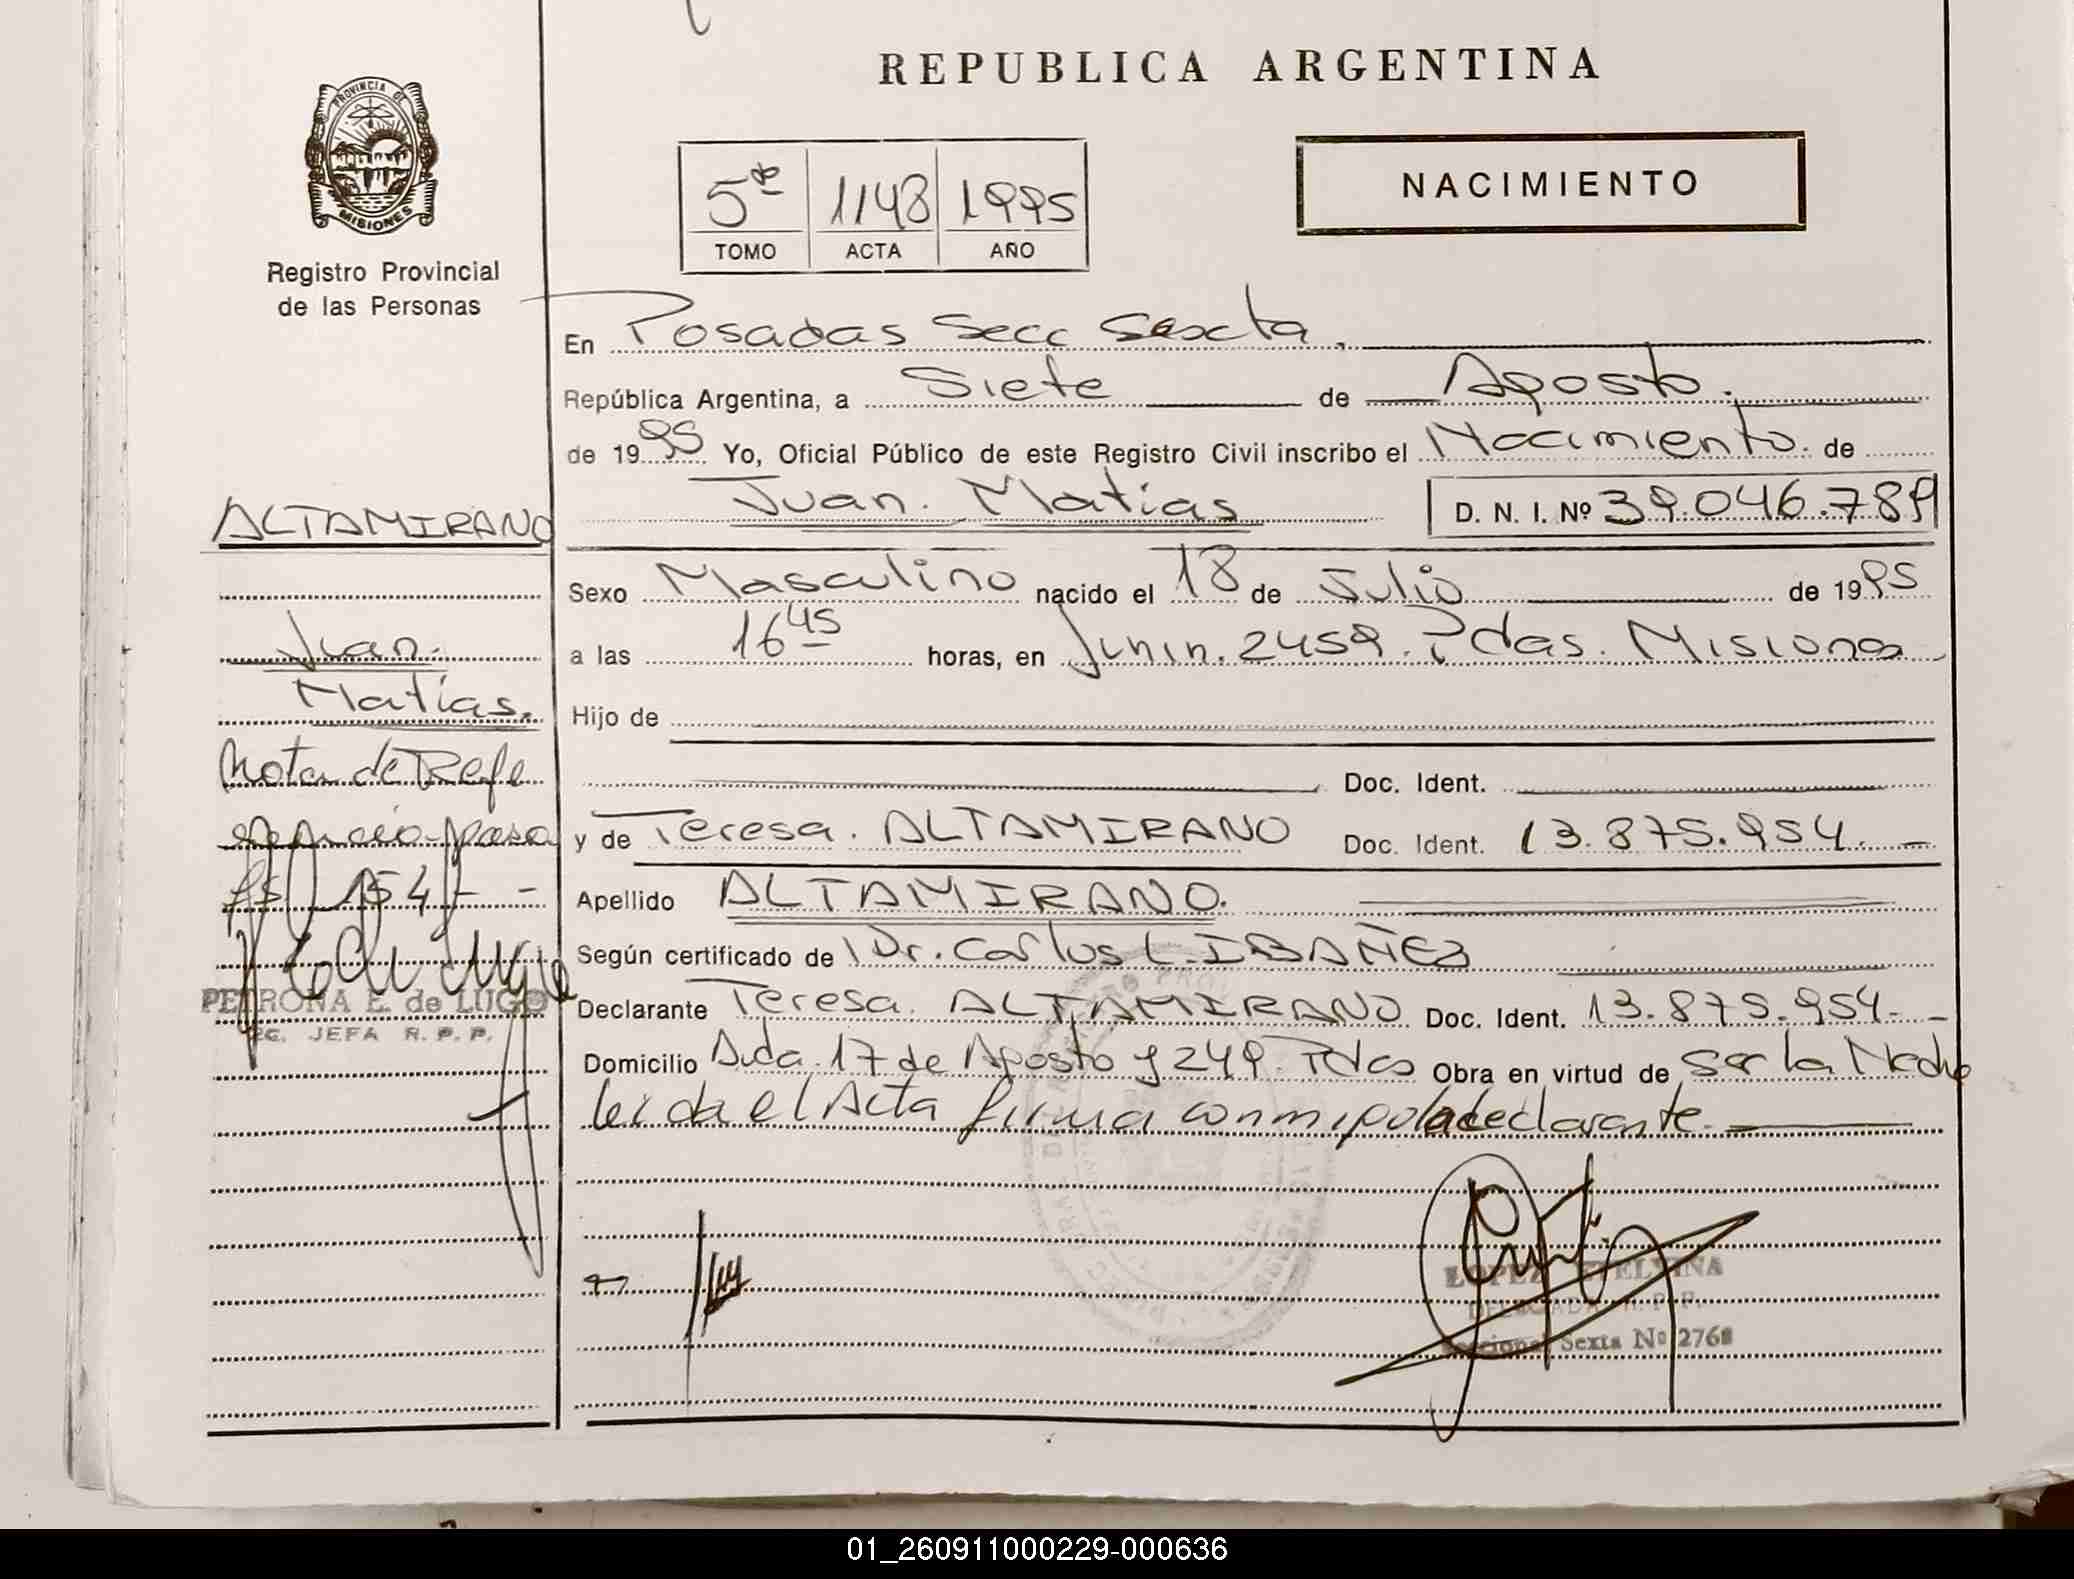 REPUBLICA ARGENTINA
PROVINCIA DE
MISIONES
Registro Provincial
de las Personas
5to 1148 1995
TOMO ACTA AÑO
NACIMIENTO
En Posadas Secc Sexta.
República Argentina, a Siete de Agosto.
de 1995 Yo, Oficial Público de este Registro Civil inscribo el Nacimiento. de
Juan. Matias D. N. I. Nº 39.046.789
Sexo Masculino nacido el 18 de Julio de 1995
a las 16 45 horas, en Junin. 2459. Pdas. Misiones
Hijo de
Doc. Ident.
y de Teresa. ALTAMIRANO Doc. Ident. 13.875.954.
Apellido ALTAMIRANO.
Según certificado de Dr. Carlos L. IBAÑEZ
Declarante Teresa. ALTAMIRANO Doc. Ident. 13.875.954
Domicilio Avda. 17 de Agosto y 249. Pdas Obra en virtud de Ser la Madre
leida el Acta firma conmigo la declarante.
ALTAMIRANO
Juan.
Matías.
Nota de Refe
154
PETRONA E. de LUGO
JEFA R. P. P.
LOPEZ ETELVINA
DELEGADA R. P. P.
Seccional Sexta Nº 2768
01_260911000229-000636